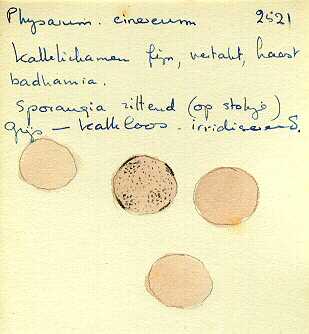 Physarum. cinereum 2521
Kalklichamen fijn, vertakt, haast
badhamia.
Sporangia zittend (op stokjes)
grijs — kalkloos. irridiserend.